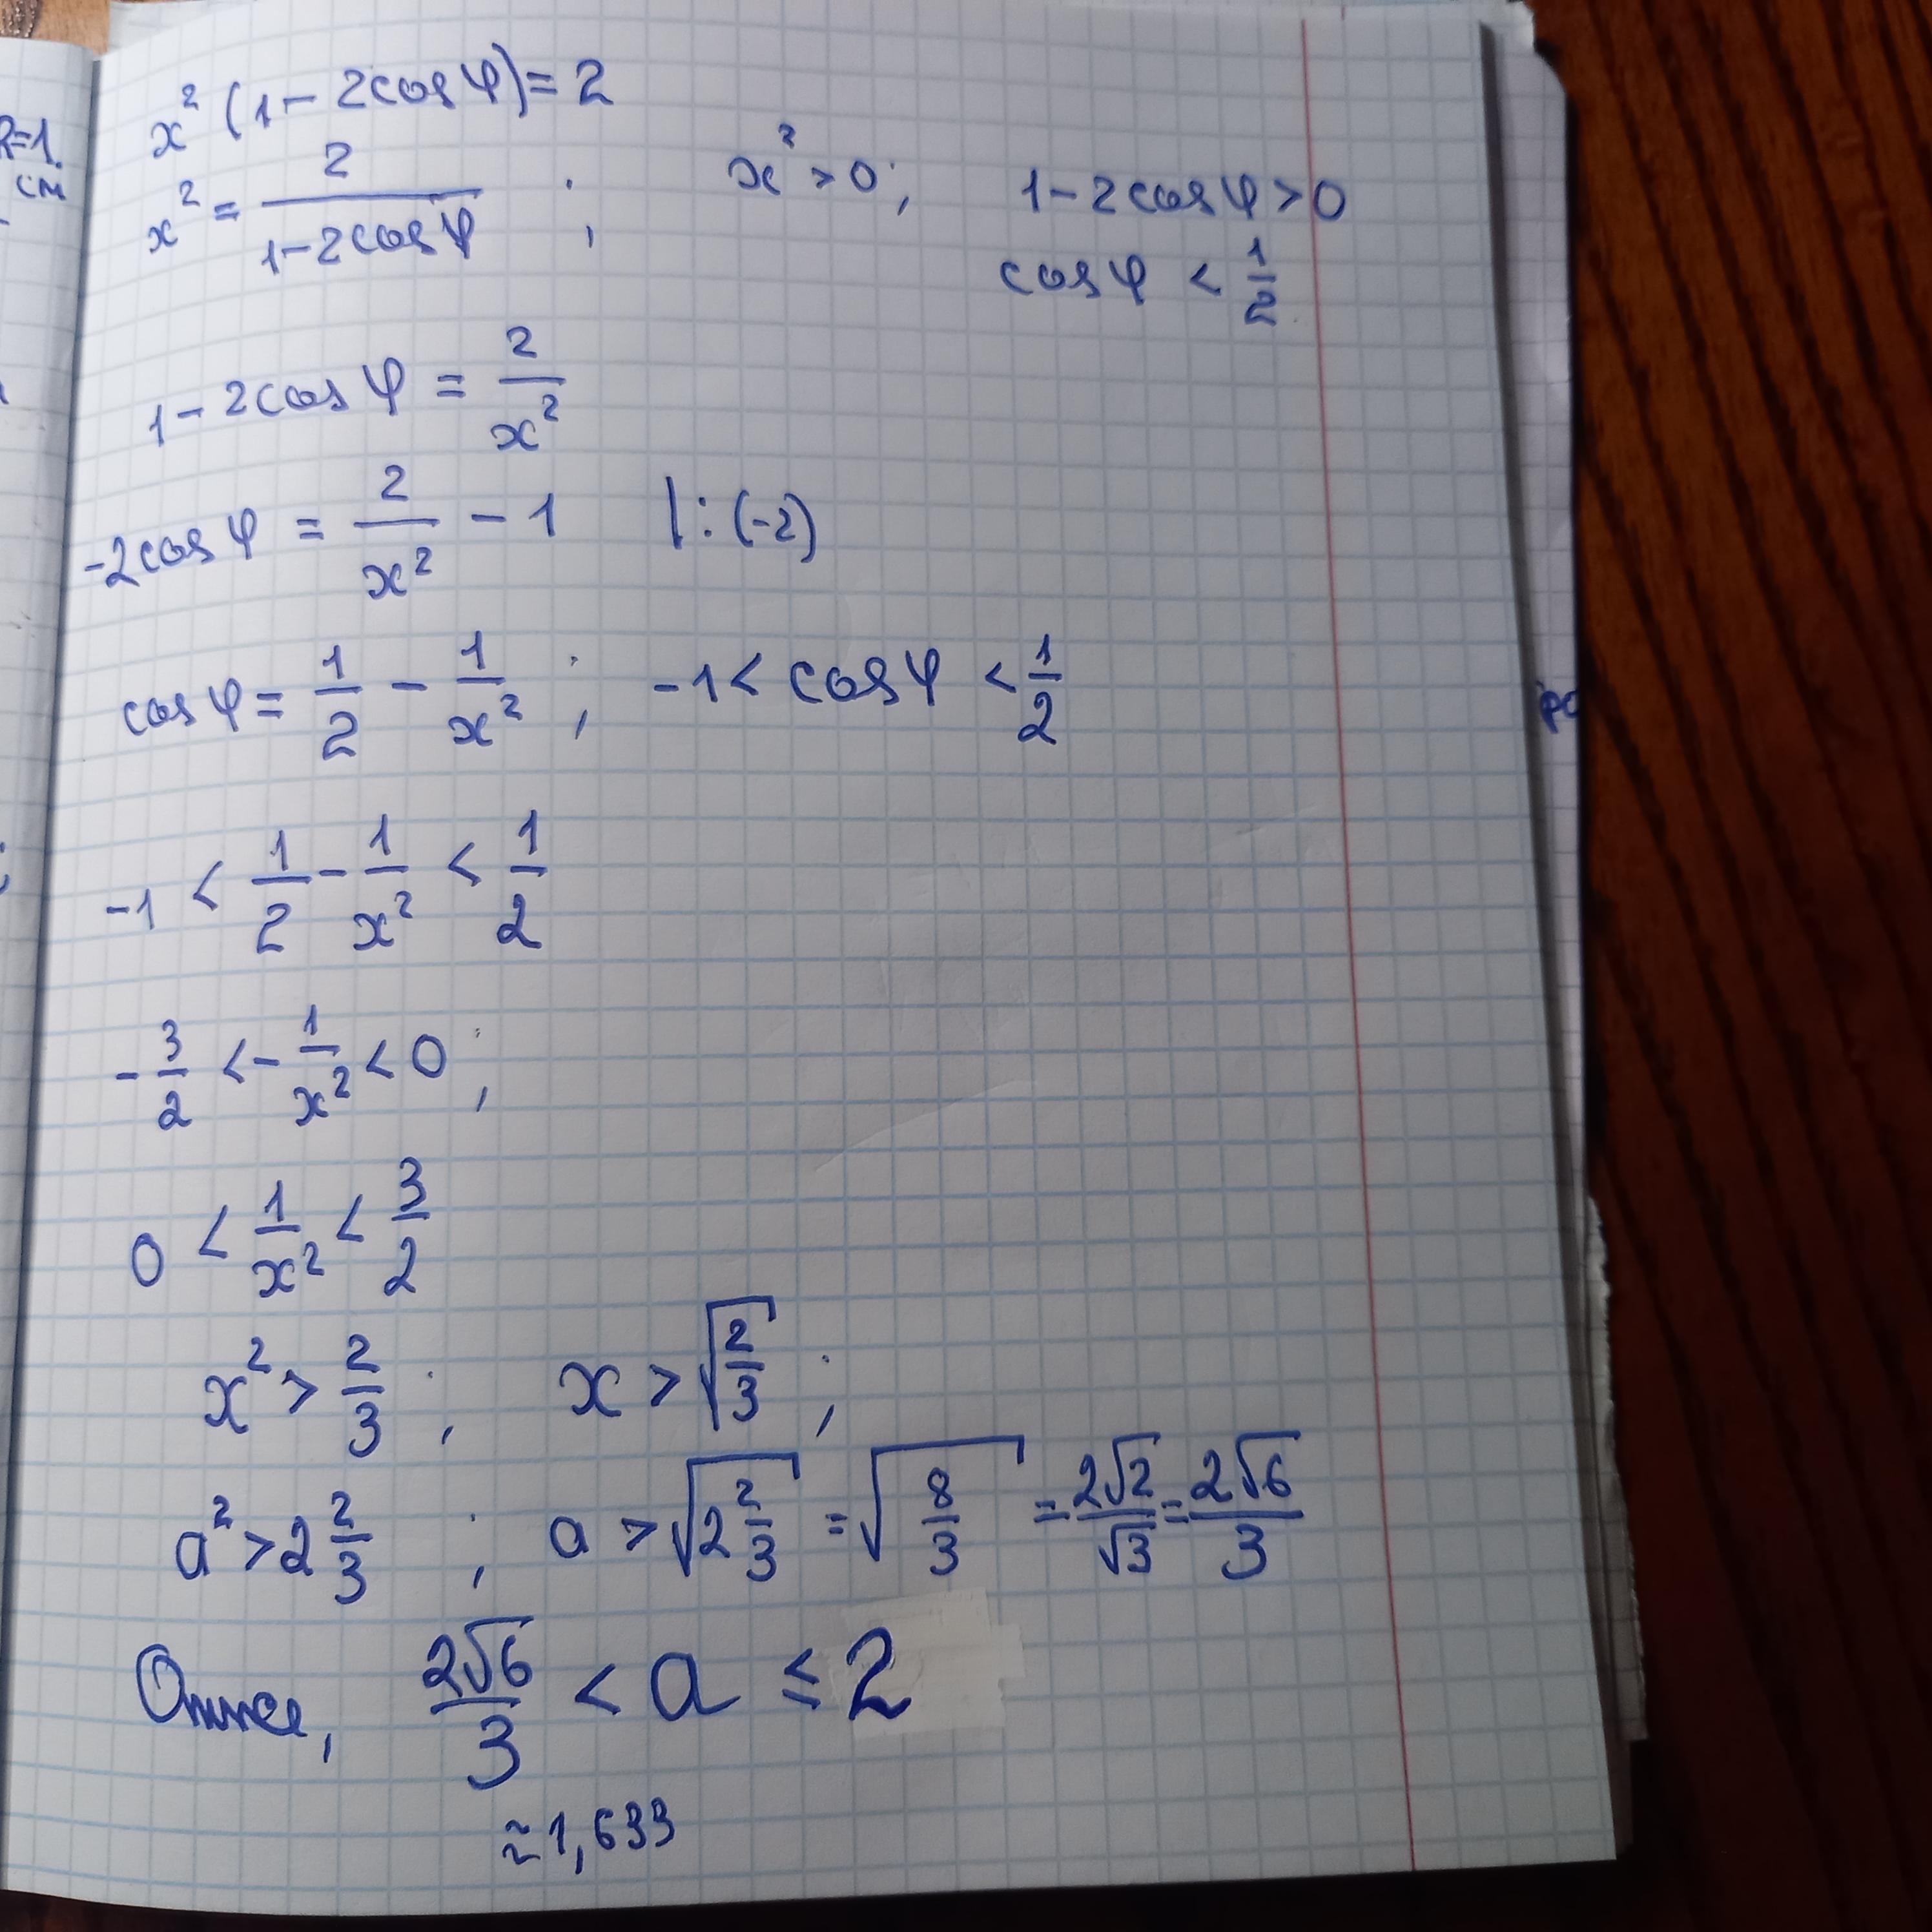 R=1.
см
x² (1 - 2cosφ) = 2
x² = 2/(1 - 2cosφ) ; x² > 0 ; 1 - 2cosφ > 0
cosφ < 1/2
1 - 2cosφ = 2/x²
-2cosφ = 2/x² - 1 |:(-2)
cosφ = 1/2 - 1/x² ; -1 < cosφ < 1/2
-1 < 1/2 - 1/x² < 1/2
-3/2 < -1/x² < 0 ;
0 < 1/x² < 3/2
x² > 2/3 ; x > √(2/3) ;
a² > 2 2/3 ; a > √(2 2/3) = √(8/3) = 2√2/√3 = 2√6/3
Отже, 2√6/3 < a ≤ 2
≈ 1,633